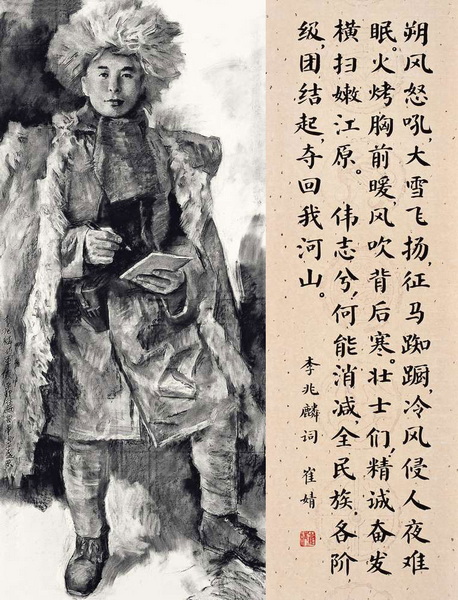 朔风怒吼,大雪飞扬,征马踟蹰,冷风侵人夜难
眠。火烤胸前暖,风吹背后寒。壮士们,精诚奋发
横扫嫩江原。伟志兮,何能消减,全民族,各阶
级,团结起,夺回我河山。
李兆麟词 崔婧